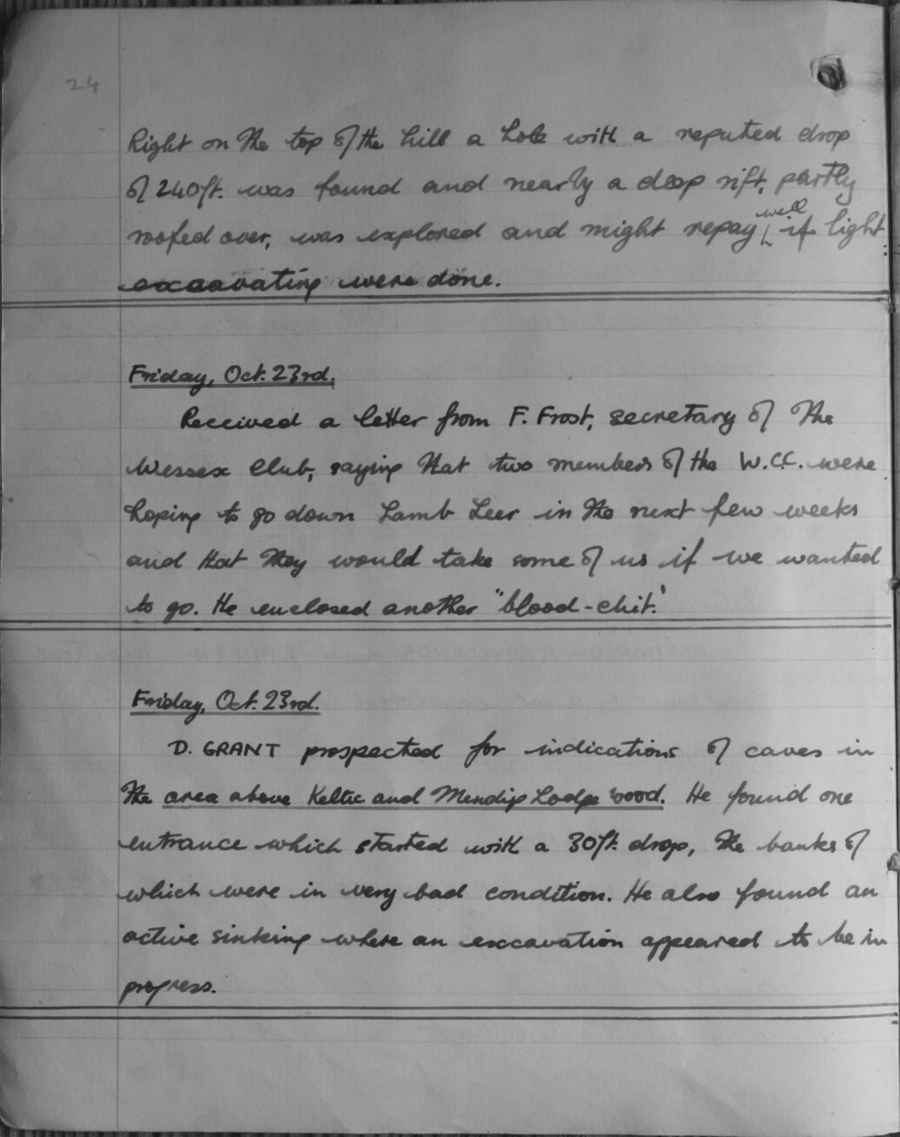 24
Right on the top of the hill a hole with a reputed drop
of 240ft. was found and nearly a deep rift, partly
roofed over, was explored and might repay well if light
excavating were done.
Friday, Oct. 23rd,
Received a letter from F. Frost, secretary of the
Wessex Club, saying that two members of the W.C.C. were
hoping to go down Lamb Leer in the next few weeks
and that they would take some of us if we wanted
to go. He enclosed another "blood-chit."
Friday, Oct. 23rd.
D. GRANT prospected for indications of caves in
the area above Keltic and Mendip Lodge wood. He found one
entrance which started with a 30ft. drop, the banks of
which were in very bad condition. He also found an
active sinking where an excavation appeared to be in
progress.